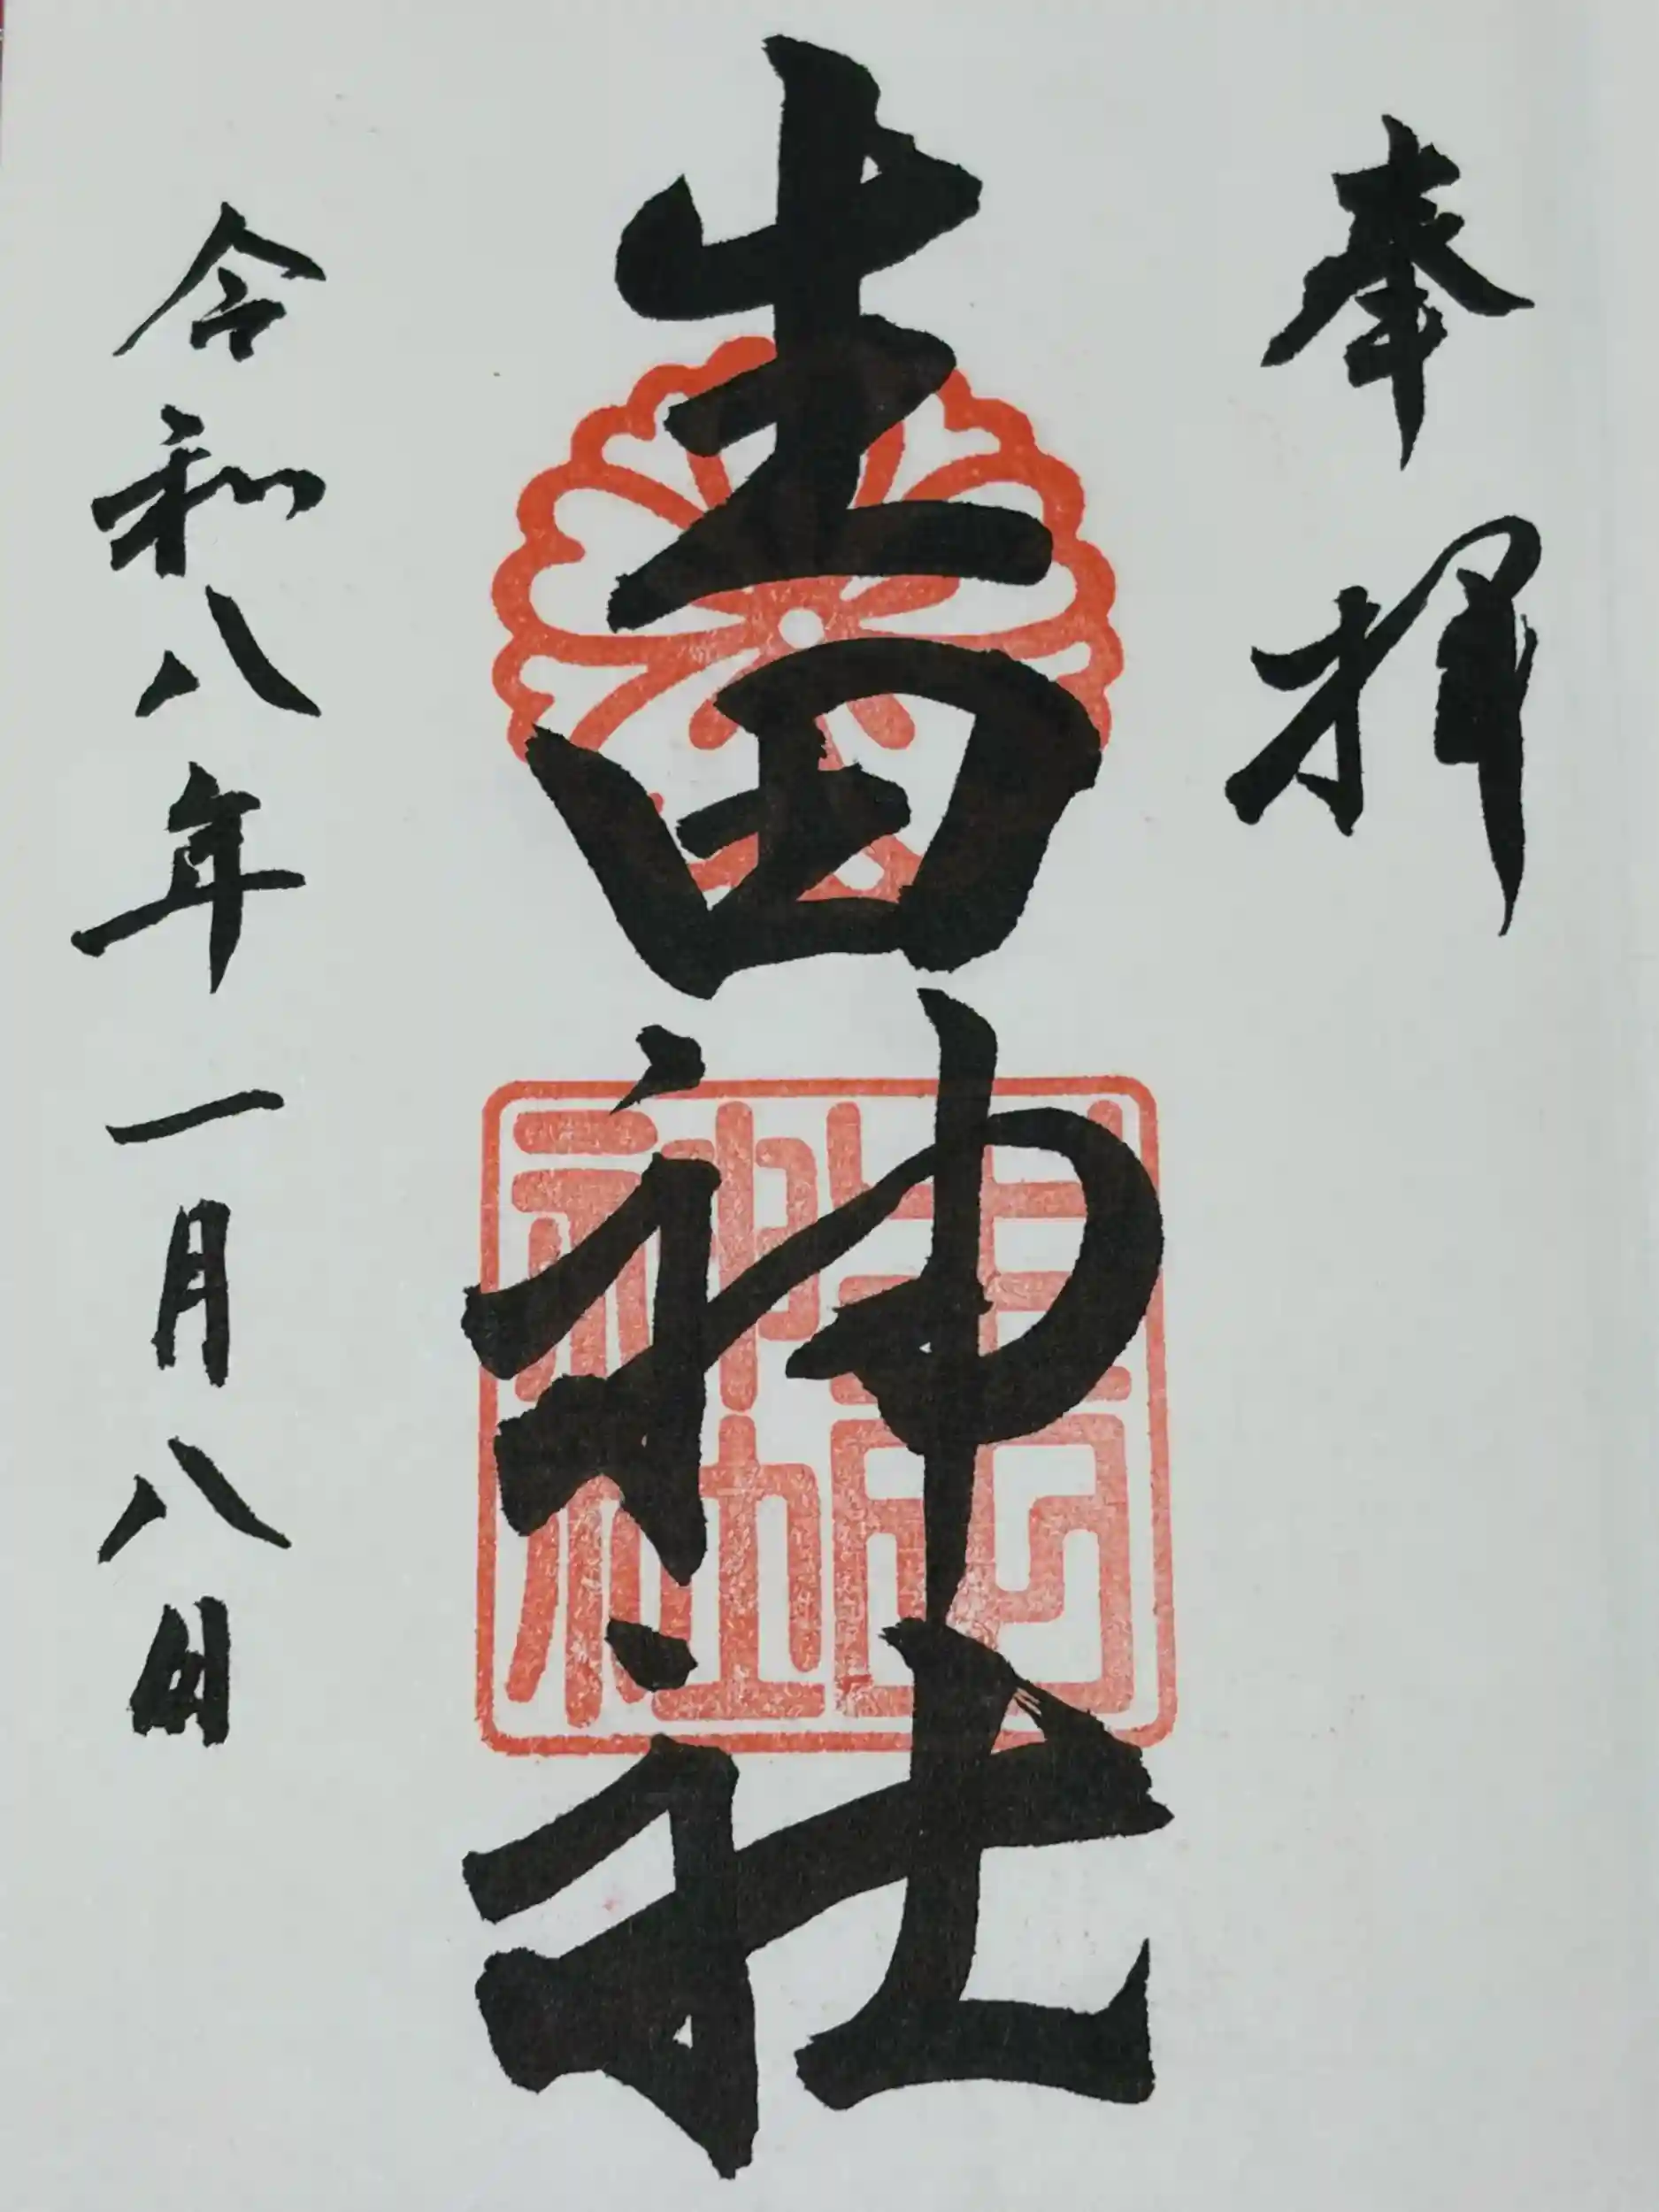 奉拝
生田神社
生田
神社
令和八年一月八日